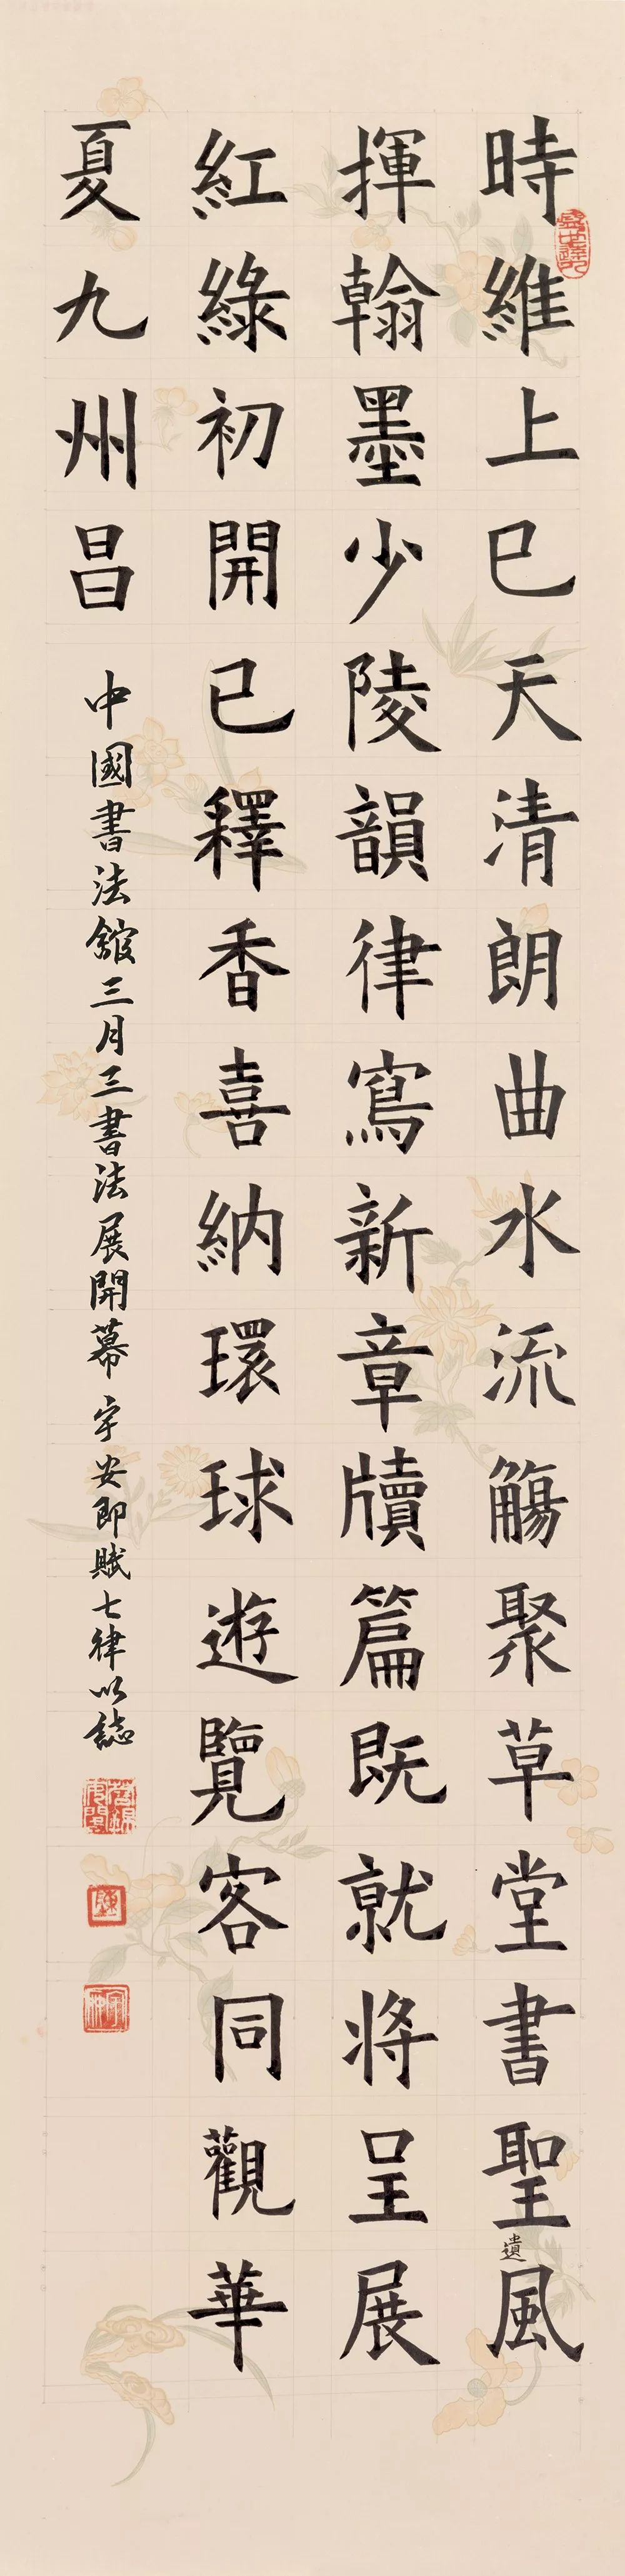 時維上巳天清朗曲水流觴聚草堂書聖遺風
揮翰墨少陵韻律寫新章牘篇既就將呈展
紅綠初開已釋香喜納環球遊覽客同觀華
夏九州昌
中國書法館三月三書法展開幕宇安即賦七律以誌